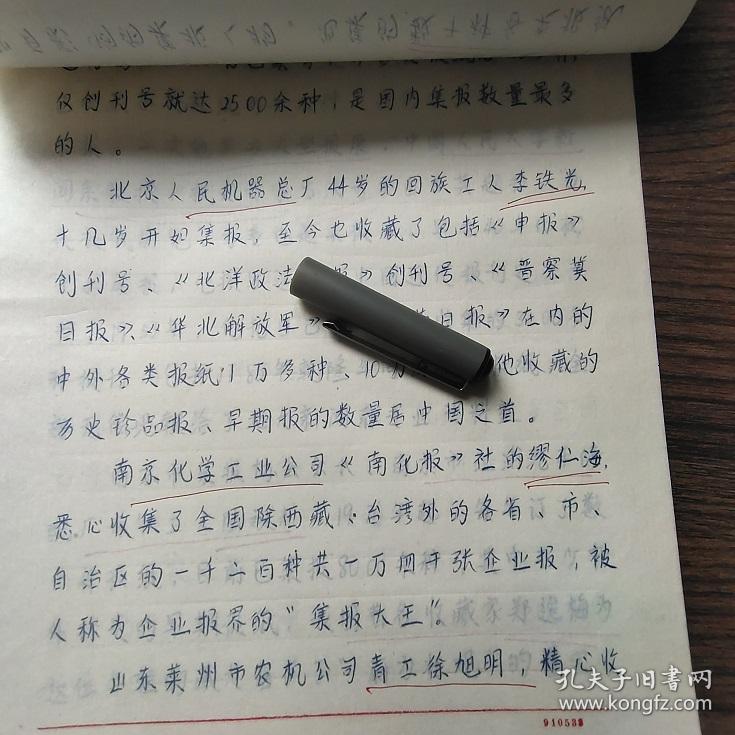 仅创刊号就达2500余种，是国内集报数量最多
的人。
北京人民机器总厂44岁的回族工人李铁光，
十几岁开始集报，至今也收藏了包括《申报》
创刊号、《北洋政法 报》创刊号、《晋察冀
日报》、《华北解放军》 日报》在内的
中外各类报纸1万多种、10万 他收藏的
历史珍品报、早期报的数量居中国之首。
南京化学工业公司《南化报》社的缪仁海，
悉心收集了全国除西藏、台湾外的各省、市、
自治区的一千六百种共一万四千张企业报，被
人称为企业报界的"集报大王"。
山东莱州市农机公司青工徐旭明，精心收
910538
孔夫子旧书网
www.kongfz.com